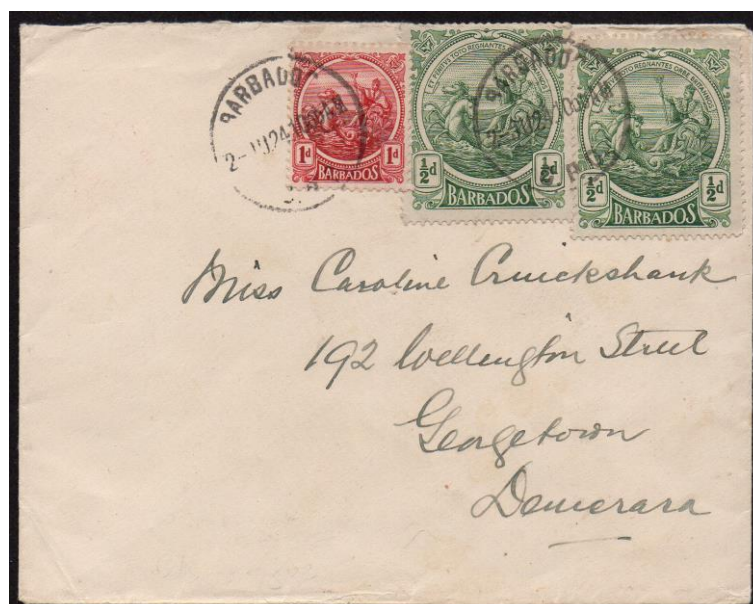 BARBADO
1d 1d
BARBADOS
ET PENITUS TOTO REGNANTES ORBE BRITANNOS
½d ½d
BARBADOS
BARBADO
ET PENITUS TOTO REGNANTES ORBE BRITANNOS
½d ½d
BARBADOS
Miss Caroline Cruickshank
192 Wellington Street
Georgetown
Demerara